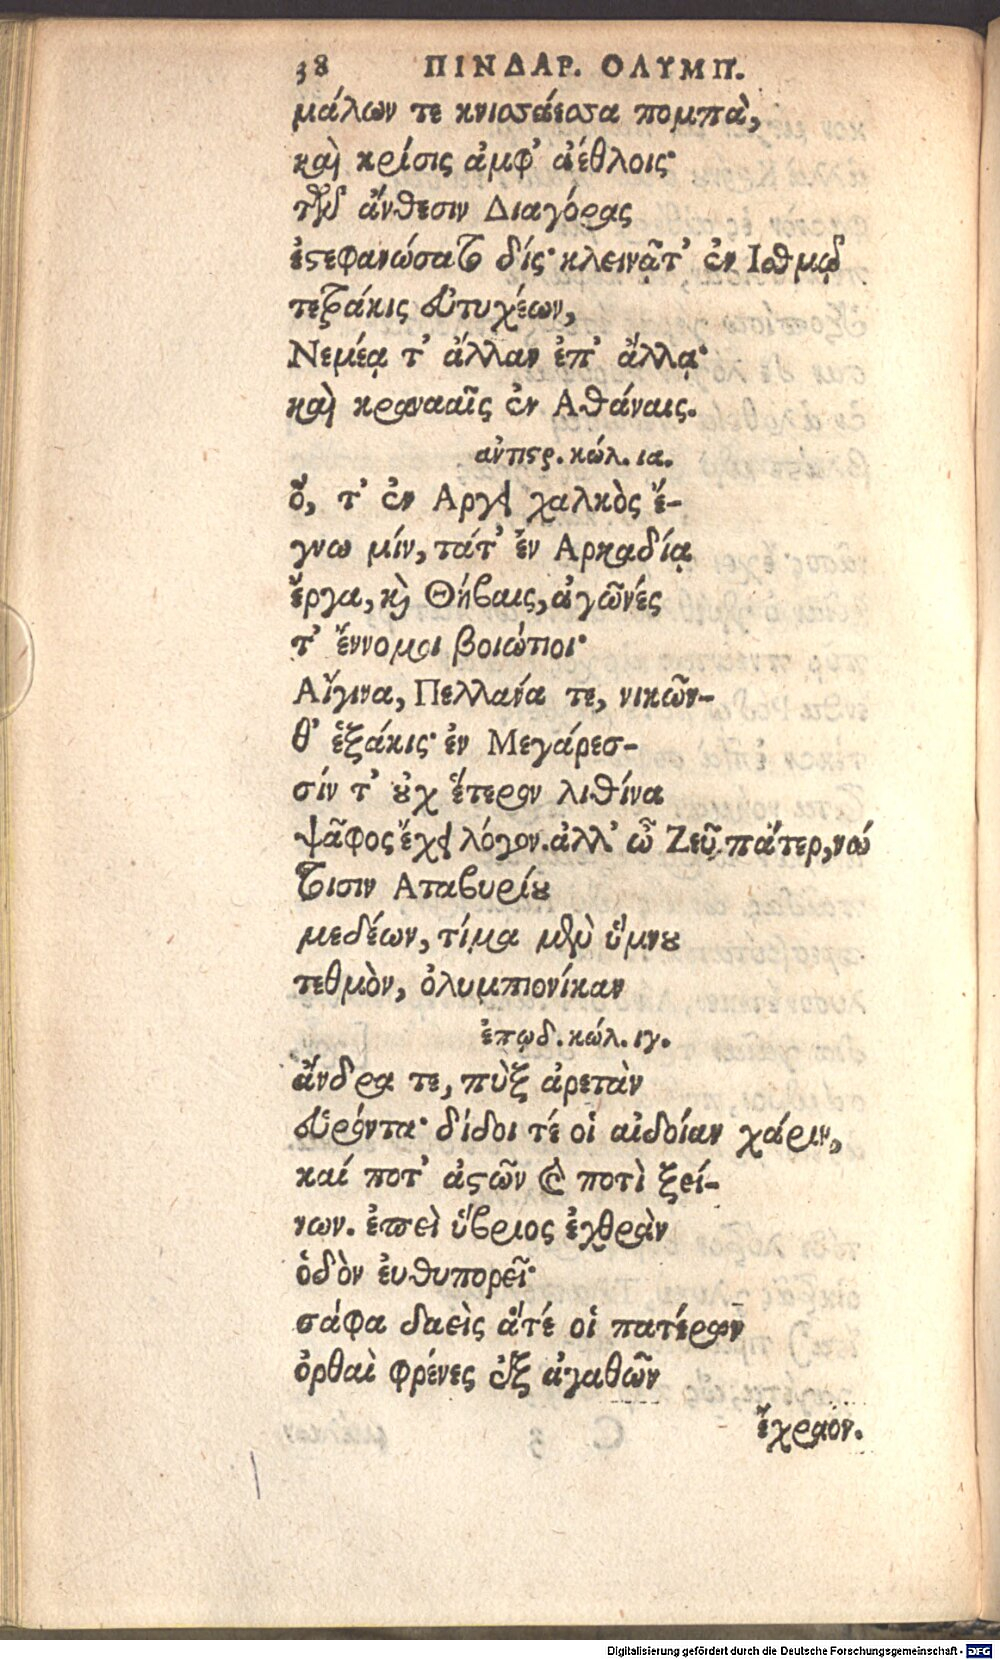 38 ΠΙΝΔΑΡ. ΟΛΥΜΠ.
μάλων τε κνιοσάεοσα πομπὰ,
καὶ κρίσις ἀμφ' ἀέθλοις·
τῶν ἄνθεσιν Διαγόρας
ἐστεφανώσατο δίς· κλεινᾷ τ' ἐν Ιοθμῷ
τετράκις εὐτυχέων,
Νεμέᾳ τ' ἄλλαν ἐπ' ἄλλᾳ·
καὶ κρανααῖς ἐν Αθάναις.
αντιστρ. κώλ. ια.
ὅ, τ' ἐν Αργει χαλκὸς ἔ-
γνω μίν, τάτ' ἐν Αρκαδίᾳ
ἔργα, καὶ Θήβαις, ἀγῶνές
τ' ἔννομοι βοιώτιοι·
Αἴγινα, Πελλάνα τε, νικῶν-
θ' ἑξάκις· ἐν Μεγάρεσ-
σίν τ' οὐχ ἕτερον λιθίνα
ψᾶφος ἔχει λόγον. ἀλλ' ὦ Ζεῦ πάτερ, νώ
τοισιν Αταβυρίου
μεδέων, τίμα μὲν ὕμνου
τεθμὸν, ὀλυμπιονίκαν
ἐπῳδ. κώλ. ιγ.
ἄνδρα τε, πὺξ ἀρετὰν
εὑρόντα· δίδοι τέ οἱ αἰδοίαν χάριν,
καί ποτ' ἀστῶν καὶ ποτὶ ξεί-
νων. ἐπεὶ ὕβριος ἐχθρὰν
ὁδὸν ἐυθυπορεῖ·
σάφα δαεὶς ἅτέ οἱ πατέρων
ὀρθαὶ φρένες ἐξ ἀγαθῶν
ἔχραον.
Digitalisierung gefördert durch die Deutsche Forschungsgemeinschaft - DFG